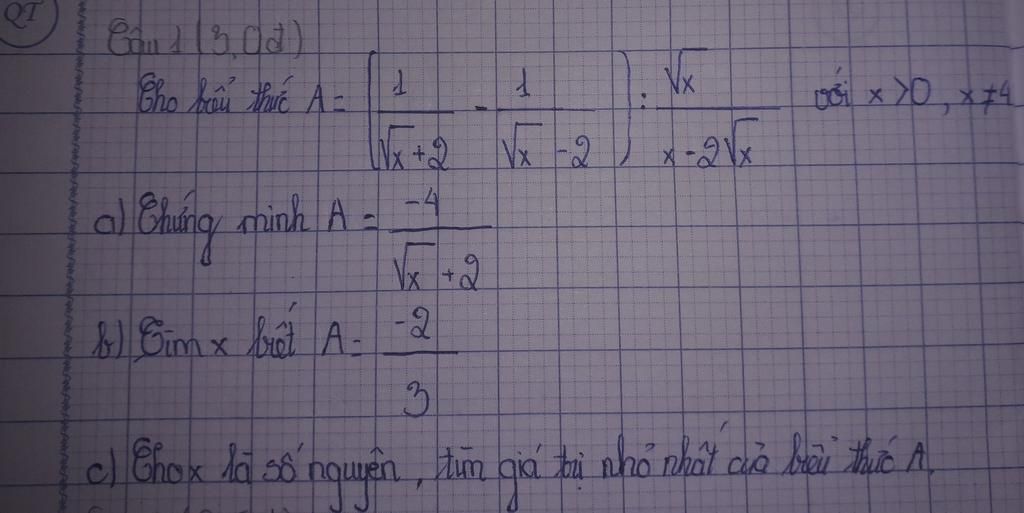 QI
Câu 1 (3,0đ)
Cho biểu thức A = (1/(√x + 2) - 1/(√x - 2)) : √x/(x - 2√x) với x > 0, x ≠ 4
a) Chứng minh A = -4/(√x + 2)
b) Tìm x biết A = -2/3
c) Cho x là số nguyên, tìm giá trị nhỏ nhất của biểu thức A.